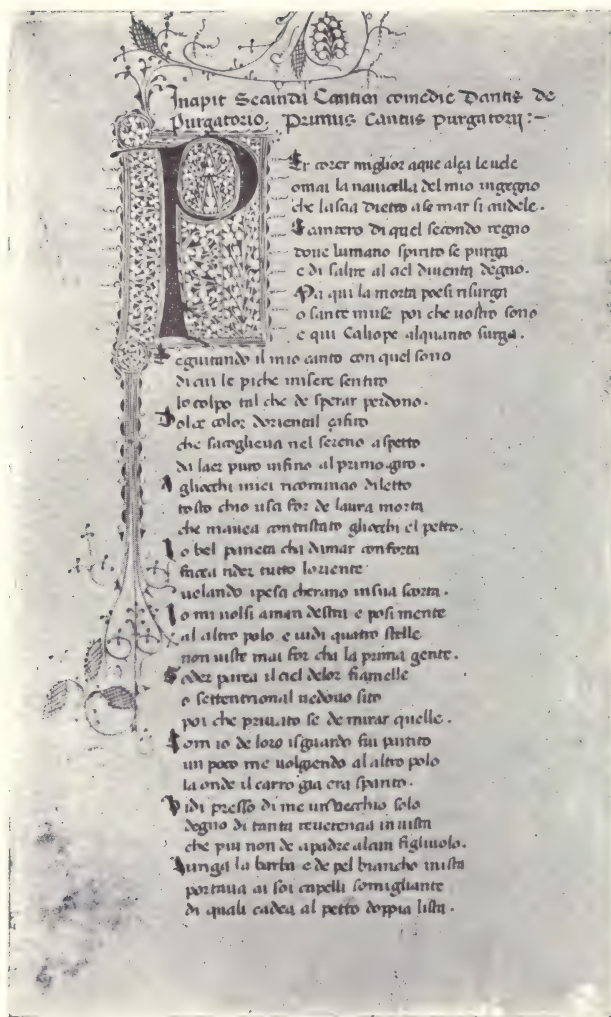 Incipit Secunda Cantica comedie Dantis de
Purgatorio. Primus Cantus Purgatorij:~
PEr corer miglior aque alça le uele
omai la nauicella del mio ingegno
che lascia dietro a se mar si crudele.
E cantero di quel secondo regno
doue lumano spirito se purga
e di salire al ciel diuenta degno.
Ma qui la morta poesi risurga
o sante muse poi che uostro sono
e qui Caliope alquanto surga.
Seguitando il mio canto con quel sono
di cui le piche misere sentiro
lo colpo tal che de sperar perdono.
Dolce color doriental çafiro
che sacoglieua nel sereno aspetto
di laer puro infino al primo giro.
A gliocchi miei ricomincio diletto
tosto chio usci for de laura morta
che mauea contristato gliocchi el petto.
Lo bel pianeta cha damar conforta
facea rider tutto loriente
uelando ipesci cherano insua scorta.
Io mi uolsi aman destra e posi mente
al altro polo e uidi quatro stelle
non uiste mai for cha la prima gente.
Goder parea il ciel delor fiamelle
o settentrional uedouo sito
poi che priuato se de mirar quelle.
Com io de loro isguardo fui partito
un poco me uolgiendo al altro polo
la onde il carro gia era sparito.
Vidi presso di me un vecchio solo
degno di tanta reuerencia in uista
che piu non de apadre alcun figliuolo.
Lunga la barba e de pel biancho mista
portaua ai soi capelli somigliante
di quali cadea al petto doppia lista.